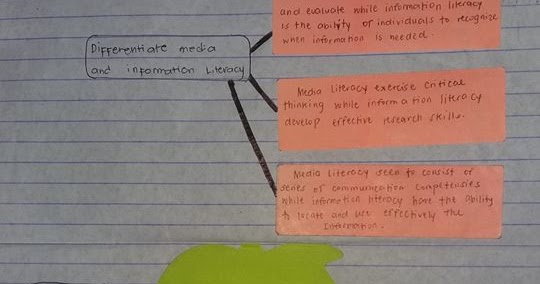 Differentiate media
and information Literacy
and evaluate while information literacy
is the ability of individuals to recognize
when information is needed.
Media Literacy exercise critical
thinking while information literacy
develop effective research skills.
Media Literacy seen to consist of
series of communication competensies
while information literacy have the ability
to locate and use effectively the
Information.